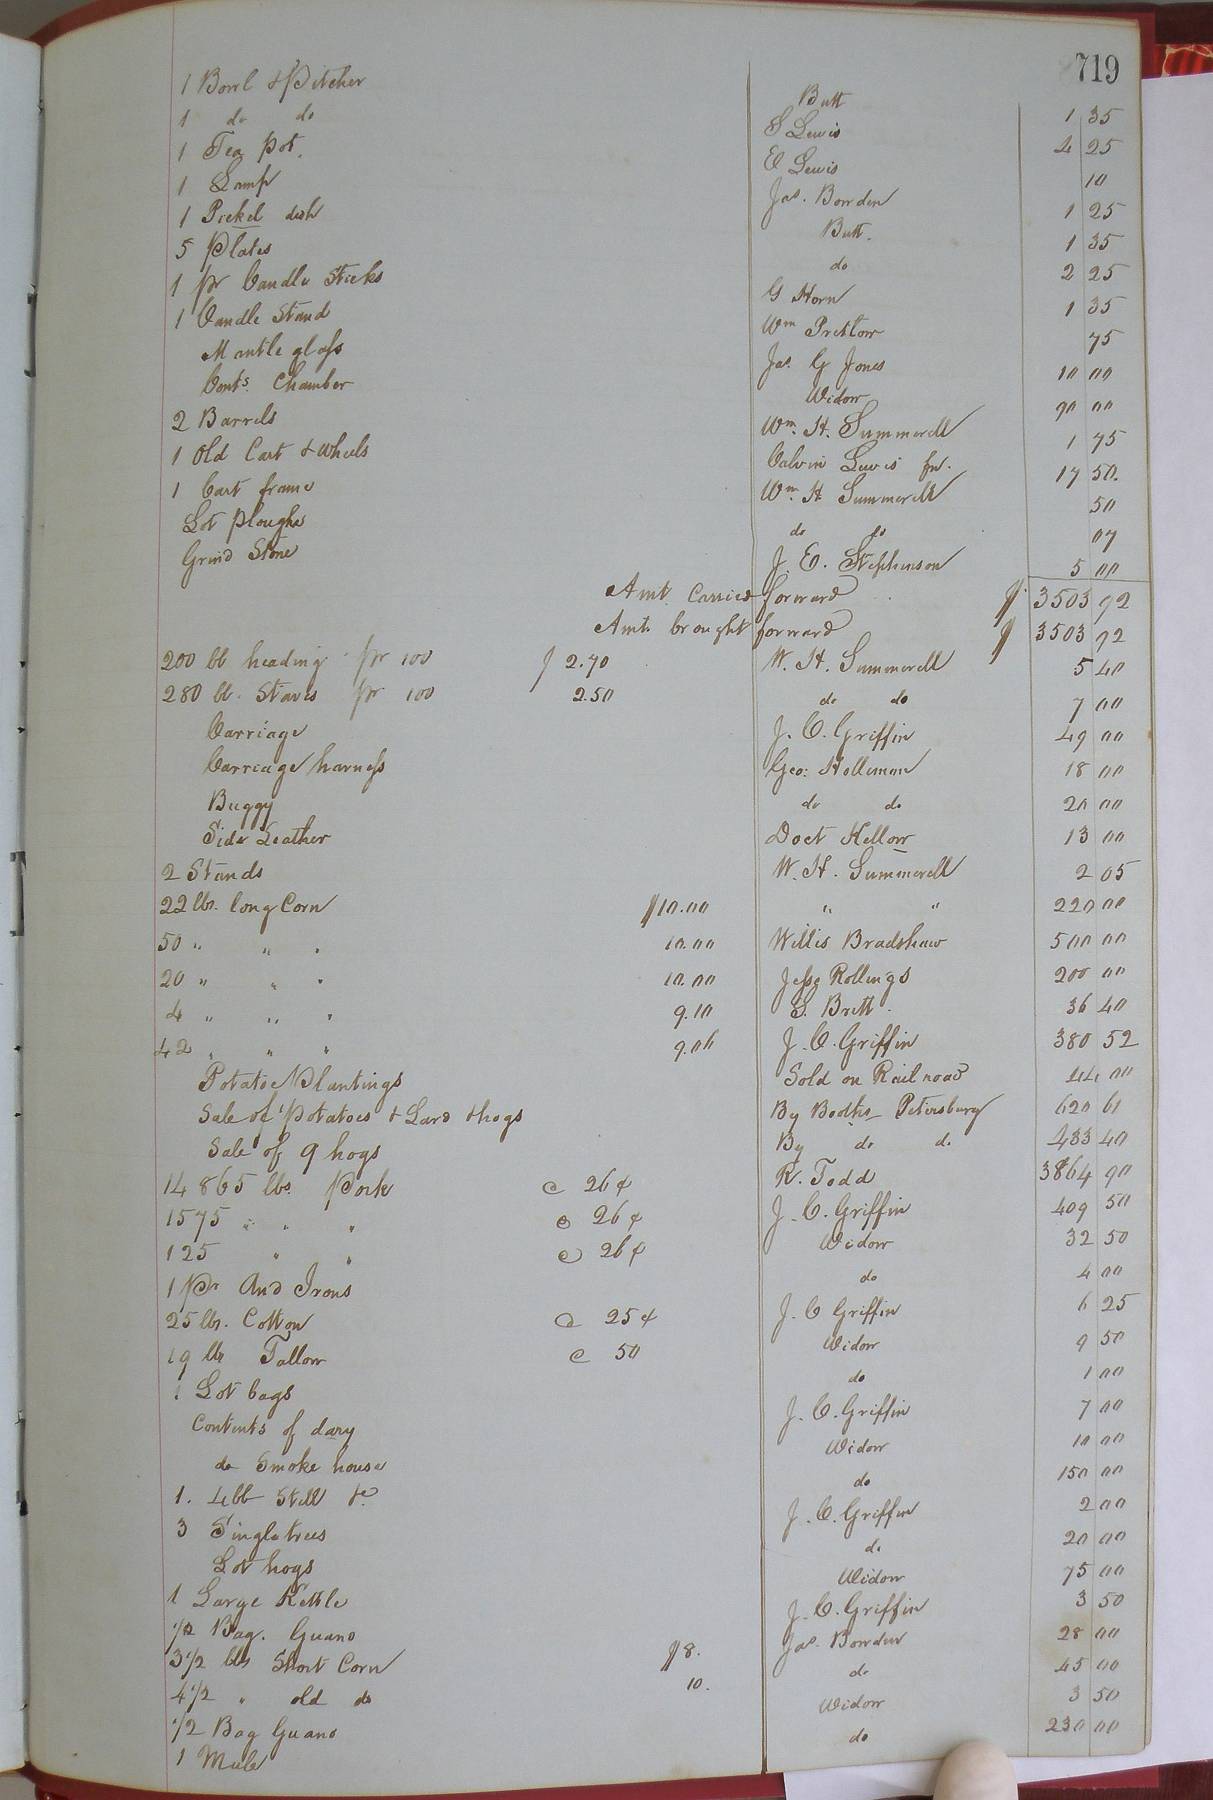 719
1 Bowl & Pitcher Butt 1 35
1 do do S Lewis 4 25
1 Tea Pot. E Lewis 10
1 Lamp Jas. Bowden 1 25
1 Pickel dish Butt. 1 35
5 Plates do 2 25
1 pr Candle Sticks G Horn 1 35
1 Candle Stand Wm Pretlow 75
Mantle glass Jas. G Jones 10 00
Conts. Chamber Widow 90 00
2 Barrels Wm. H. Summerell 1 75
1 Old Cart & Wheels Calvin Lewis 17 50.
1 Cart frame Wm. H Summerell 50
Lot Ploughs do do 07
Grind Stone J. E. Stephenson 5 00
Amt. Carried forward $ 3503 92
Amt. brought forward $ 3503 92
200 bb heading pr 100 $ 2.70 W. H. Summerell 5 40
280 bb. Staves pr 100 2.50 do do 7 00
Carriage J. C. Griffin 49 00
Carriage harness Geo: Holleman 18 00
Buggy do do 20 00
Side Leather Doct Kellow 13 00
2 Stands W. H. Summerell 2 05
22 bbs. long Corn $10.00 " " 220 00
50 " " " 10.00 Willis Bradshaw 500 00
20 " " " 10.00 Jesse Rollings 200 00
4 " " " 9.10 S. Brett. 36 40
42 " " " 9.06 J. C. Griffin 380 52
Potatoe Plantings Sold on Railroad 44 00
Sale of Potatoes & Lard & hogs By Booths Petersburg 620 61
Sale of 9 hogs By do do 433 40
14865 lbs. Pork @ 26¢ R. Todd 3864 90
1575 " " " @ 26¢ J. C. Griffin 409 50
125 " " @ 26¢ Widow 32 50
1 Pr And Irons do 4 00
25 lbs. Cotton @ 25¢ J. C Griffin 6 25
19 lbs Tallow @ 50 Widow 9 50
1 Lot bags do 1 00
Contents of dary J. C. Griffin 7 00
do Smoke house Widow 10 00
1. 4 bb Still &c do 150 00
3 Singletrees J. C. Griffin 2 00
Lot hogs do 20 00
1 Large Kettle Widow 75 00
1/2 Bag. Guano J. C. Griffin 3 50
3 1/2 bbs Short Corn $8. Jas. Bowden 28 00
4 1/2 " old do 10. do 45 00
1/2 Bag Guano Widow 3 50
1 Mule do 230 00